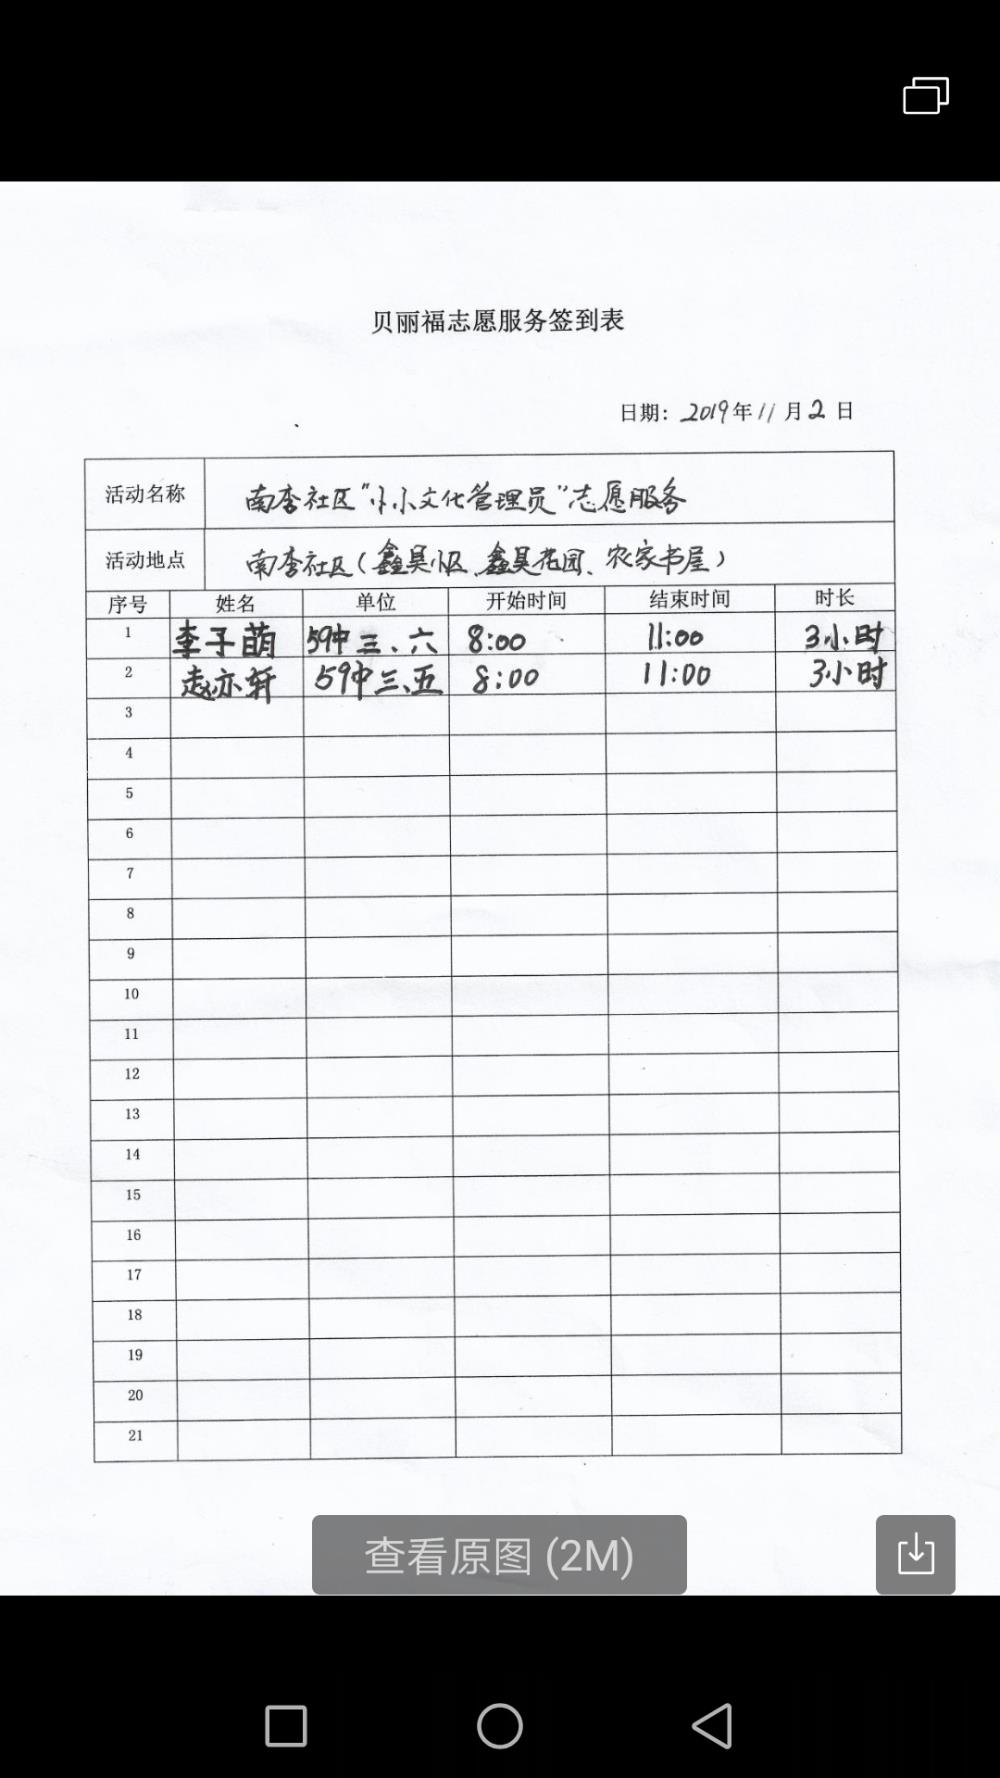 贝丽福志愿服务签到表
日期：2019年11月2日
活动名称 南李社区“小小文化管理员”志愿服务
活动地点 南李社区（鑫昊小区、鑫昊花园、农家书屋）
序号 姓名 单位 开始时间 结束时间 时长
1 李子萌 59中三、六 8:00 11:00 3小时
2 赵亦轩 59中三、五 8:00 11:00 3小时
3
4
5
6
7
8
9
10
11
12
13
14
15
16
17
18
19
20
21
查看原图 (2M)